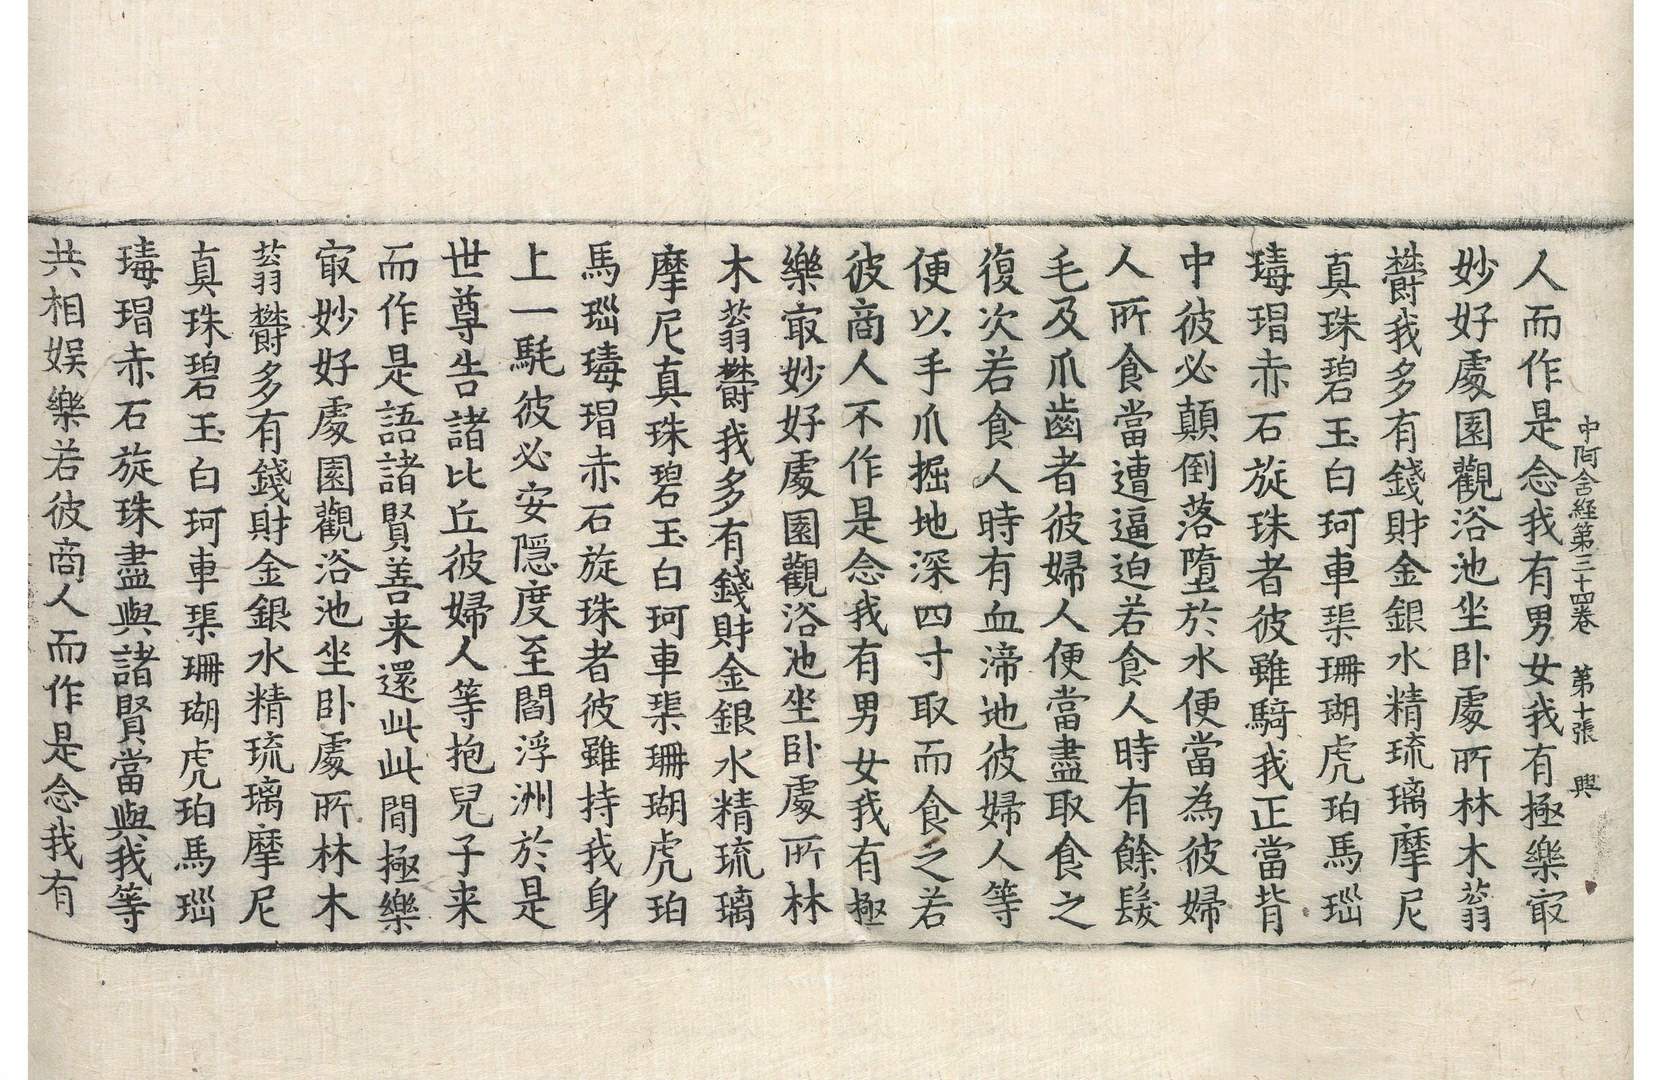 中阿含経第三十四卷　第十張　興
人而作是念我有男女我有極樂㝡
妙好處園觀浴池坐卧處所林木蓊
欝我多有錢財金銀水精琉璃摩尼
真珠碧玉白珂車璖珊瑚虎珀馬瑙
瑇瑁赤石旋珠者彼雖騎我正當背
中彼必顛倒落墮於水便當為彼婦
人所食當遭逼迫若食人時有餘髮
毛及爪齒者彼婦人便當盡取食之
復次若食人時有血渧地彼婦人等
便以手爪掘地深四寸取而食之若
彼商人不作是念我有男女我有極
樂㝡妙好處園觀浴池坐卧處所林
木蓊欝我多有錢財金銀水精琉璃
摩尼真珠碧玉白珂車璖珊瑚虎珀
馬瑙瑇瑁赤石旋珠者彼雖持我身
上一毦彼必安隱度至閻浮洲於是
世尊告諸比丘彼婦人等抱兒子来
而作是語諸賢善来還此此間極樂
㝡妙好處園觀浴池坐卧處所林木
蓊欝多有錢財金銀水精琉璃摩尼
真珠碧玉白珂車璖珊瑚虎珀馬瑙
瑇瑁赤石旋珠盡與諸賢當與我等
共相娱樂若彼商人而作是念我有